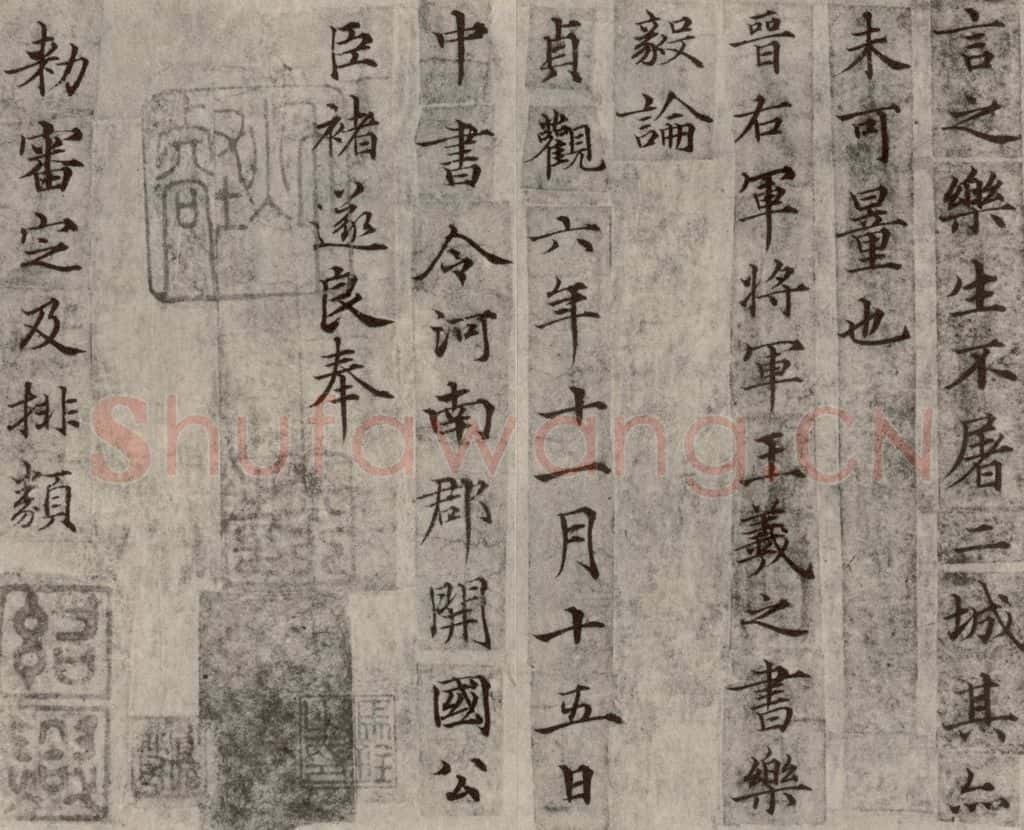 言之樂生不屠二城其亦
未可量也
晉右軍將軍王羲之書樂
毅論
貞觀六年十一月十五日
中書令河南郡開國公
臣褚遂良奉
勑審定及排類
Shufawang.CN